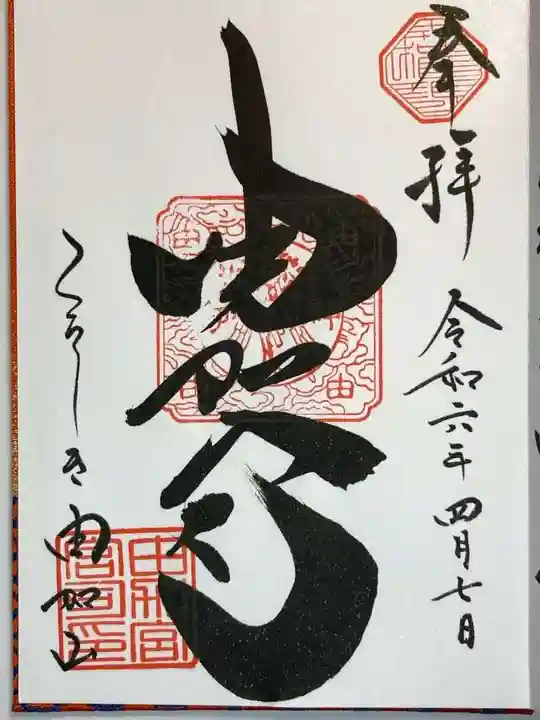 奉拝
令和六年四月七日
由加宮
くらしき由加山
由加宮
宮司印